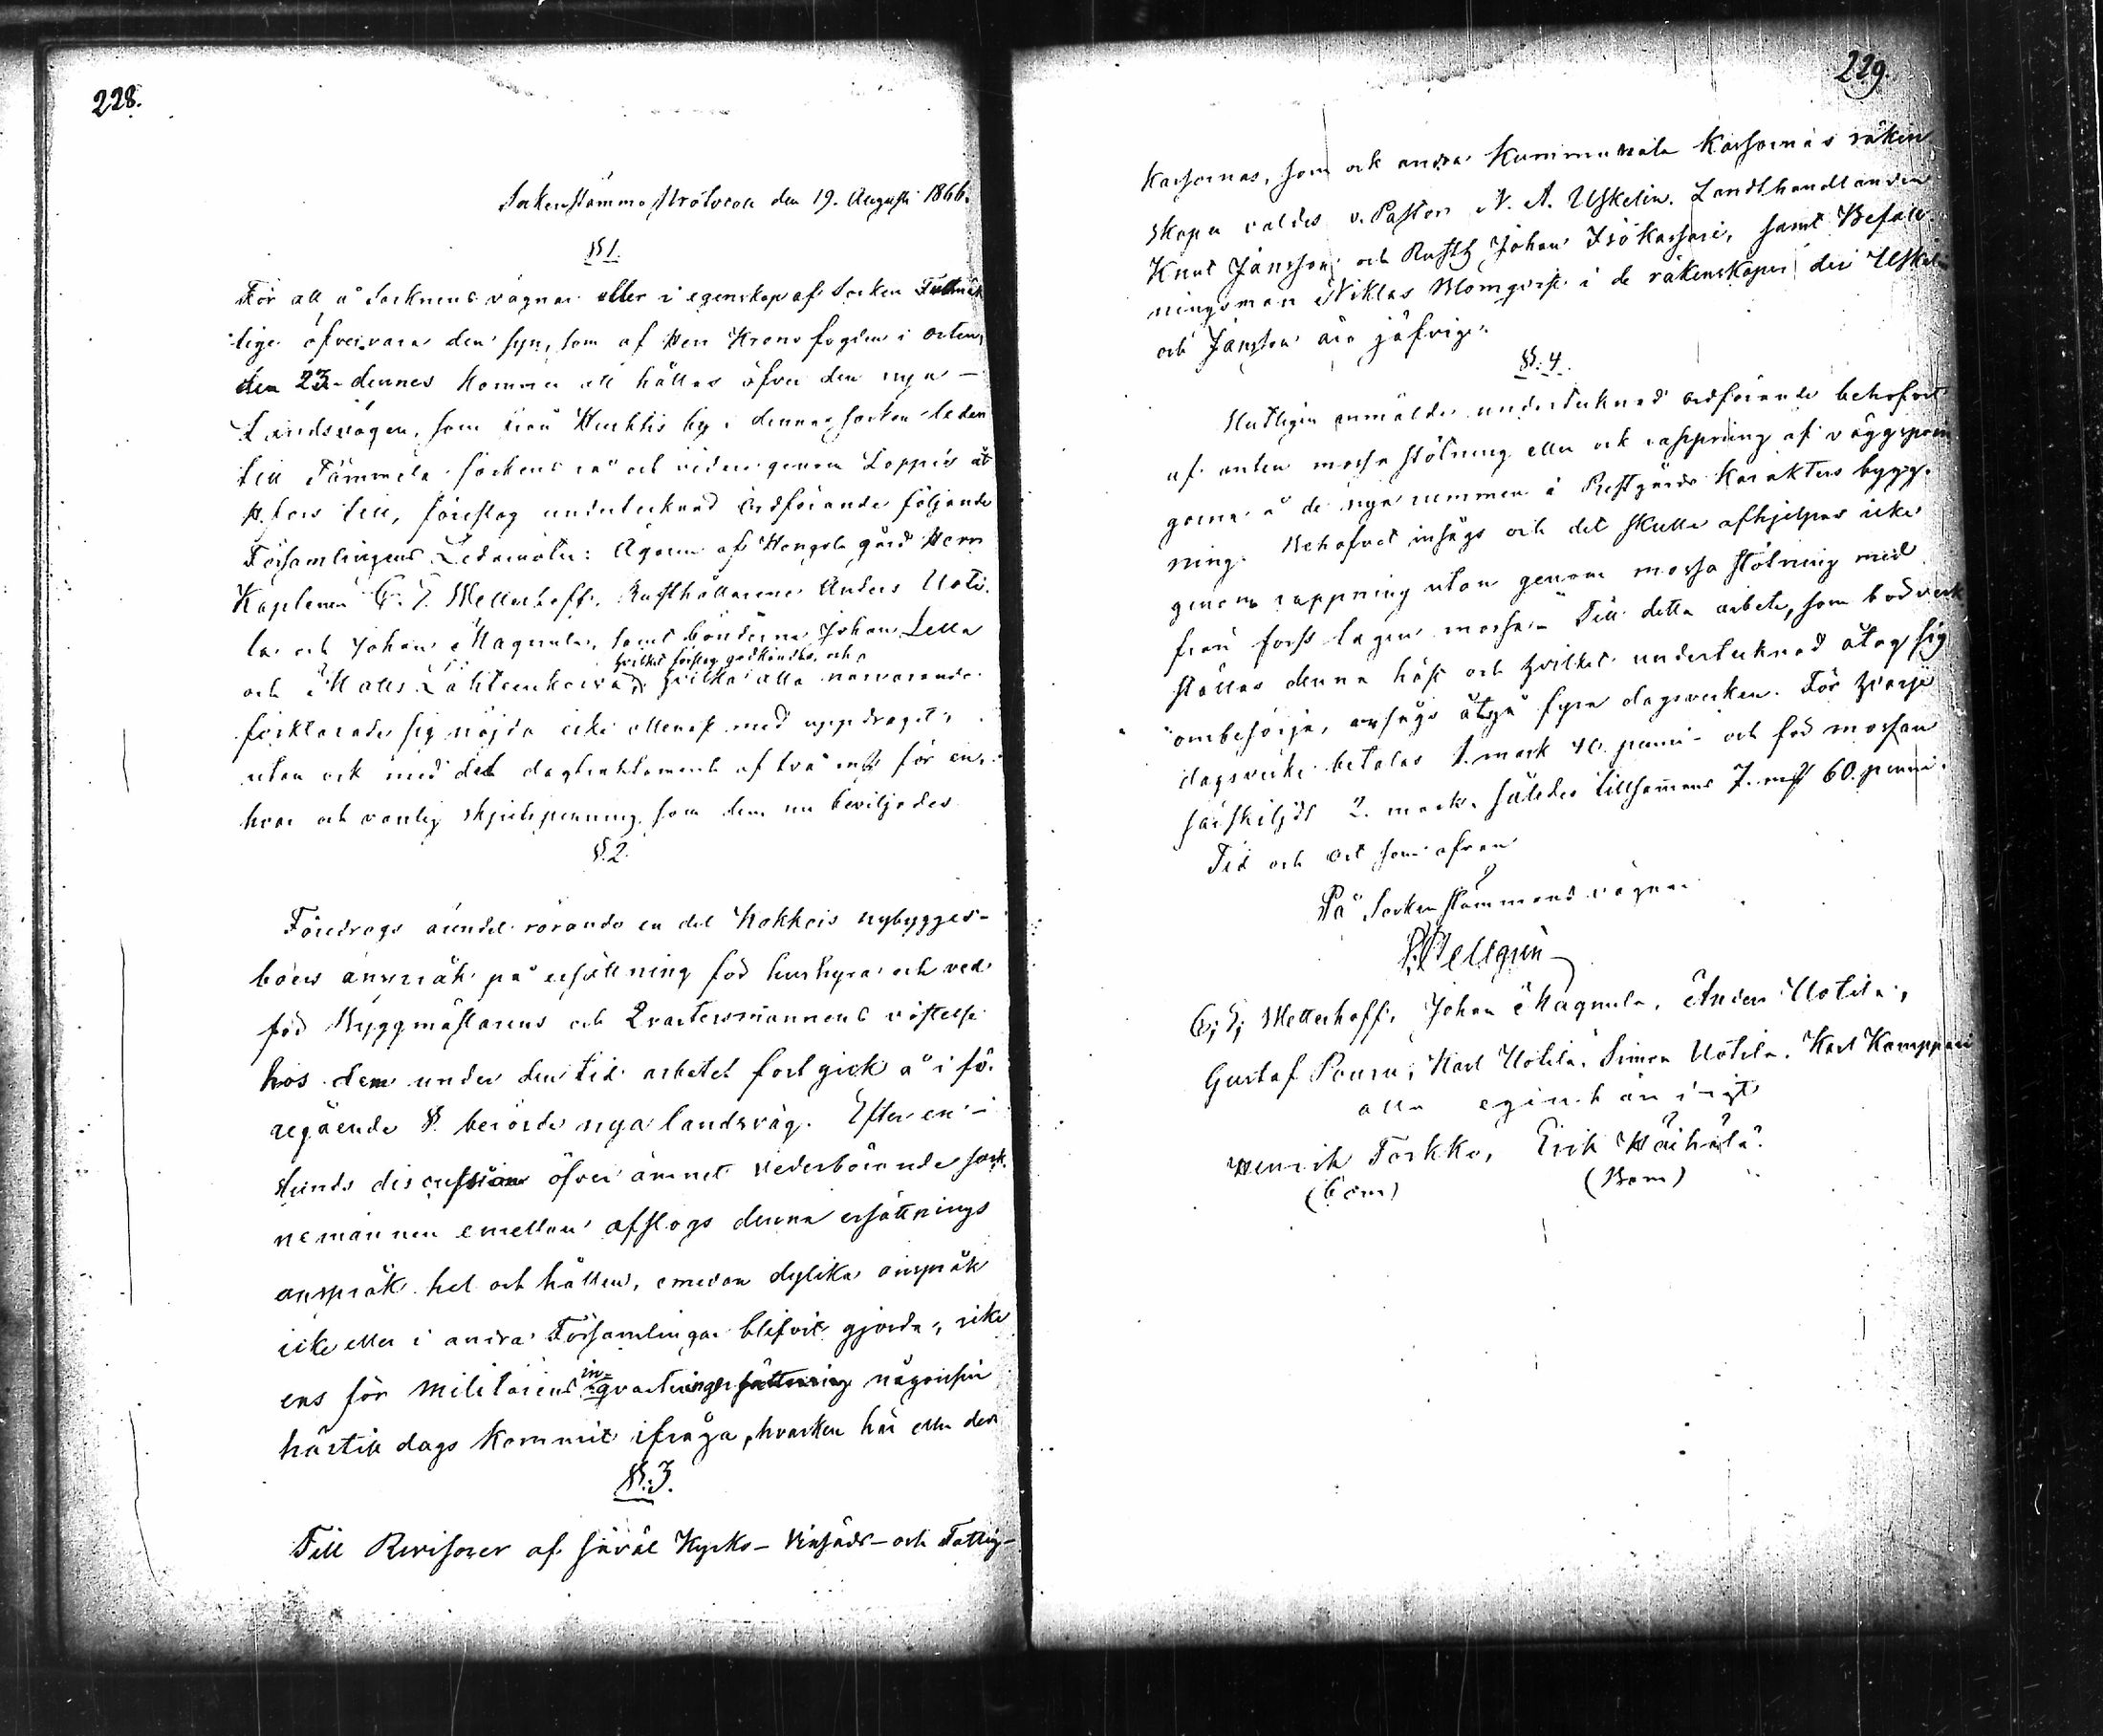 228.
Sockenstämmo Protocoll den 19. Augusti 1866.
§ 1.
För att å Socknens vägnar eller i egenskap af Socken Fullmäk
tige öfvervara den syn, som af Herr Kronofogden i orten,
den 23 dennes kommer att hållas öfver den nya
Landsvägen, som från Hunttis by i denna socken leder
till Tammela sockens rå och vidare genom Loppis åt
H.fors till, föreslog undertecknad Ordförande följande
Församlingens Ledamöter: Ägaren af Hongola gård Herr
Kaptenen G. T. Mellerhoff, Rusthållarene Anders Uoti-
la och Johan Magnula, samt bönderna Johan Sella
hvilket förslag godkändes, och
och Matts Lähteenkorva, hvilka alla närvarande
förklarade sig nöjda icke allenast med uppdraget,
utan ock med det dagtraktamente af två mk för en-
hvar och vanlig skjutspenning som dem nu beviljades
§. 2.
Föredrogs ärendet rörande en del Kokkois nybygges-
boers anspråk på ersättning för hushyra och ved
för Byggmästarens och Qvartersmannens vistelse
hos dem under den tid arbetet fortgick å i fö-
regående §. berörde nya landsväg. Efter en
stunds discussion öfver ämnet vederbörande sock-
nemännen emellan afslogs denna ersättnings
anspråk hel och hållen, emedan dylika anspråk
icke eller i andra Församlingar blifvit gjorda, icke
ens för Militärens in-qvarteringsersättning någonsin
härtill dags kommit ifråga, hvarken här eller der
§. 3.
Till Revisorer af såväl Kyrko- Vinsäds- och Fattig-
229.
kassornas, som ock andra Kommunala Kassornas räken
skaper valdes v. Pastor N. A. Uskelin, Landthandlanden
Knut Jansson och Rusth. Johan Isokarhari, samt Befall-
ningsman Niklas Blomqvist i de räkenskaper der Uskelin
och Jansson äro jäfvige.
§. 4.
Slutligen anmälde undertecknad ordförande behofvet
af anten mossa stötning eller ock rappning af väggsprin
gorna å de nya rummen i Prestgårds Karakters bygg-
ning. Behofvet insågs och det skulle afhjelpas icke
genom rappning utan genom mossa stötning med
från forss tagen mossa. Till detta arbete, som bordverk
ställas denna höst och hvilket undertecknad åtog sig
ombesörja, ansågs åtgå fyra dagsverken. För hvarje
dagsverke betalas 1. mark 40. penni och för mossan
särskiljdt 2. mark. således tillsammans 7. mk 60. penni.
Tid och ort som ofvan
På Sockenstämmans vägnar
Hellgrén
G; T; Mellerhoff, Johan Magnula, Anders Uotila,
Gustaf Pouru, Karl Uotila, Simon Uotila, Karl Kamppari
alla egenhändigt
Henrik Torkko, Erik Häihälä.
(bom) (Bom)